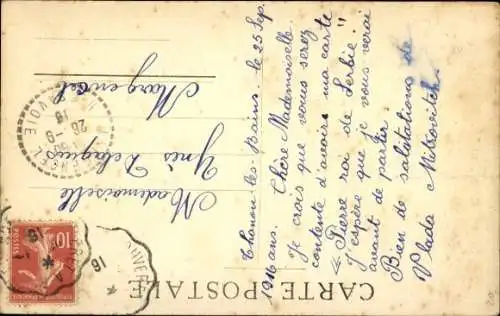 CARTE POSTALE
Thonon les Bains, le 25 Sep.
1916 ans. Chère Mademoiselle
Je crois que vous serez
contente d'avoir ma carte
« Pierre roi de Serbie »
J'espère que je vous verai
avant de partir
Bien de salutations de
Vlada Mitrovitch
Mademoiselle
Ynès Delagnes
Margencel
26-9
16
SAVOIE
10
POSTES
16